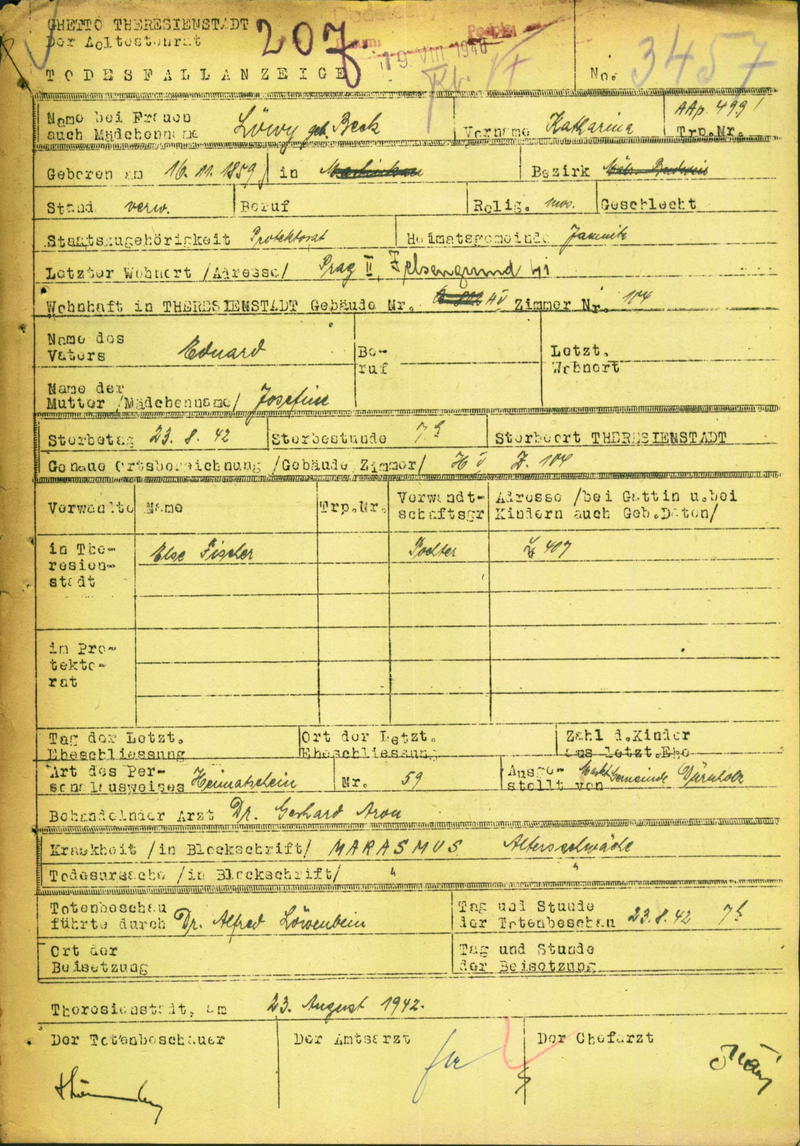 GHETTO THERESIENSTADT
Der Aeltestenrat
207
TODESFALLANZEIGE
No. 3457
Name bei Frauen auch Mädchenname Löwy geb. Beck Vorname Katharina AAp. 499 Trp.Nr.
Geboren am 16.11.1859 in Bezirk
Stand verw. Beruf Relig. mos. Geschlecht
Staatszugehörigkeit Protektorat Heimatsgemeinde Jamnitz
Letzter Wohnort /Adresse/ Prag II,
Wohnhaft in THERESIENSTADT Gebäude Nr. Zimmer Nr. 104
Name des Vaters Eduard Beruf Letzt. Wohnort
Name der Mutter /Mädchenname/ Josefine
Sterbetag 23.8.42 Sterbestunde 7 h Sterbeort THERESIENSTADT
Genaue Ortsbezeichnung /Gebäude, Zimmer/ Z. 104
Verwandte Name Trp.Nr. Verwandt-schaftsgr Adresse /bei Gattin u.bei Kindern auch Geb.Daten/
in The-resien-stadt Else Fischer L 407
in Pro-tekto-rat
Tag der Letzt. Eheschliessung Ort der Letzt. Eheschliessung Zahl d.Kinder aus letzt.Ehe
Art des Per-sonalausweises Heimatschein Nr. 59 Ausge-stellt von Gemeinde
Behandelnder Arzt Dr. Gerhard Aron
Krankheit /in Blockschrift/ MARASMUS Altersschwäche
Todesursache /in Blockschrift/ " "
Totenbeschau führte durch Dr. Alfred Löwenbein Tag und Stunde der Totenbeschau 23.8.42 7 h
Ort der Beisetzung Tag und Stunde der Beisetzung
Theresienstadt, am 23. August 1942.
Der Totenbeschauer Der Amtsarzt Der Chefarzt